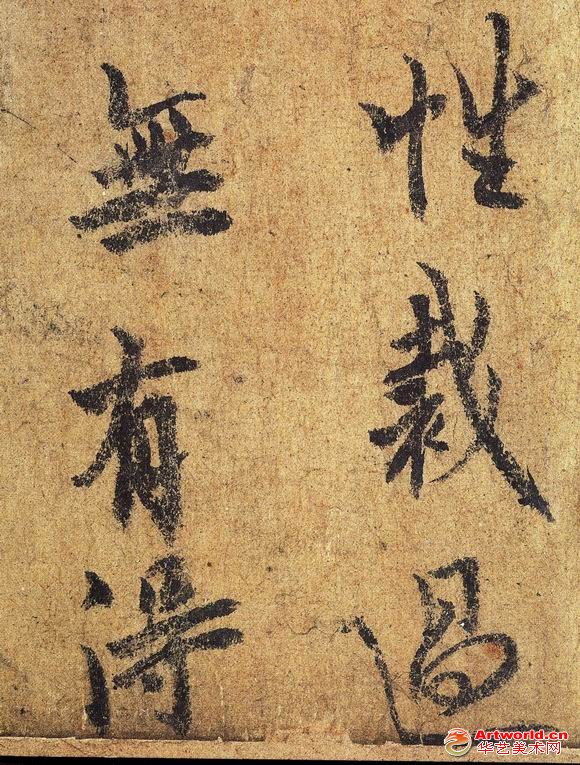 性裁過
無有得
Artworld.cn
华艺美术网